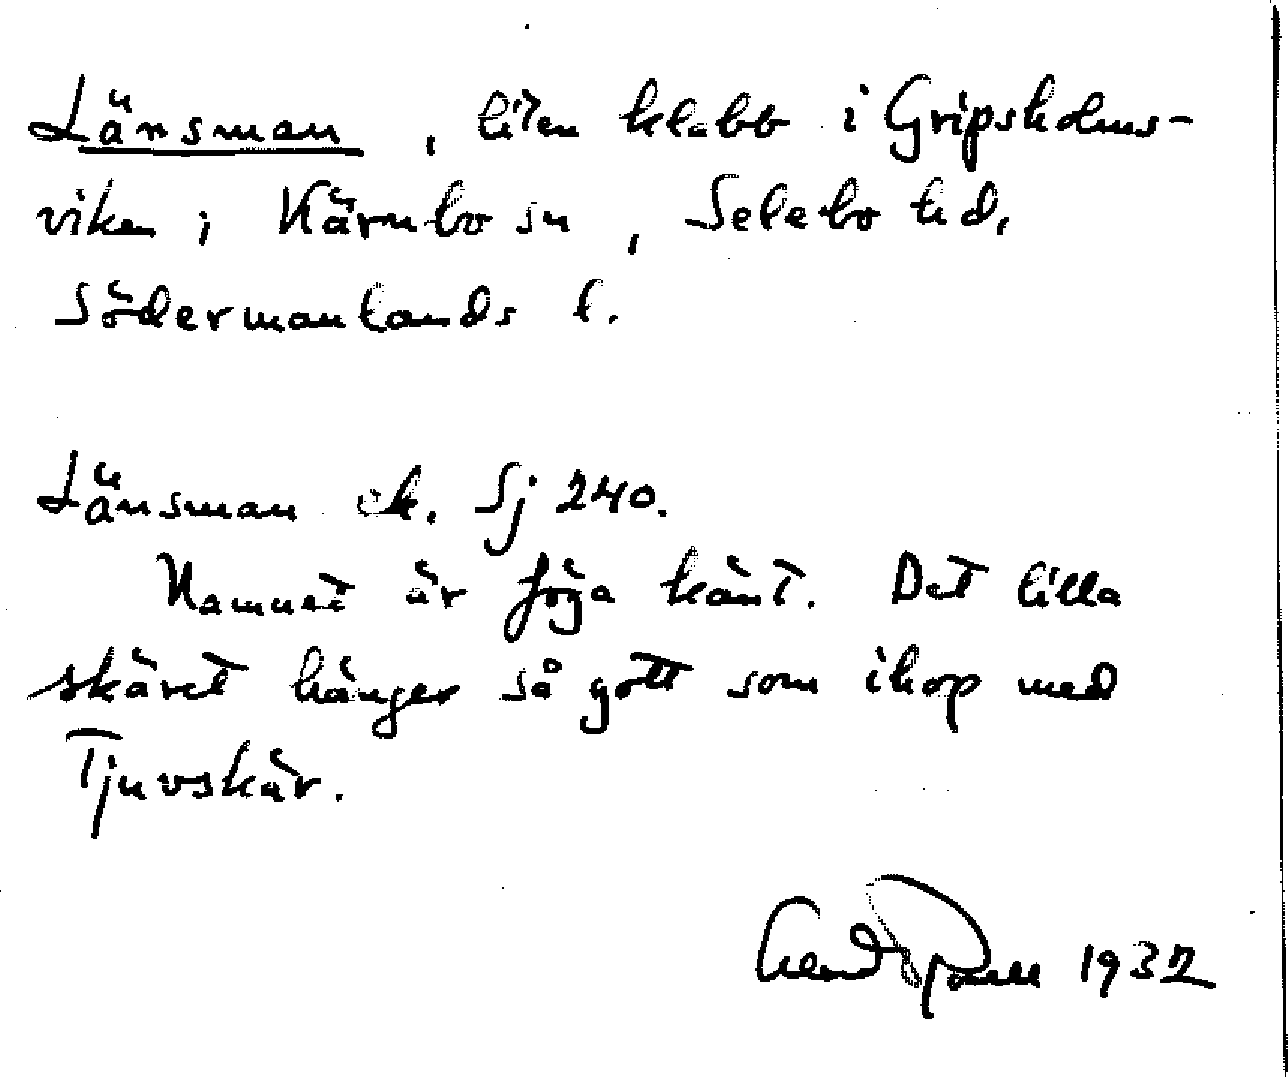 Länsman, liten klabb i Gripsholms-
viken i Kärnbo sn, Selebo hd,
Södermanlands l.
Länsman ek. Sj 240.
Namnet är föga känt. Det lilla
skäret hänger så gott som ihop med
Tjuvskär.
1937